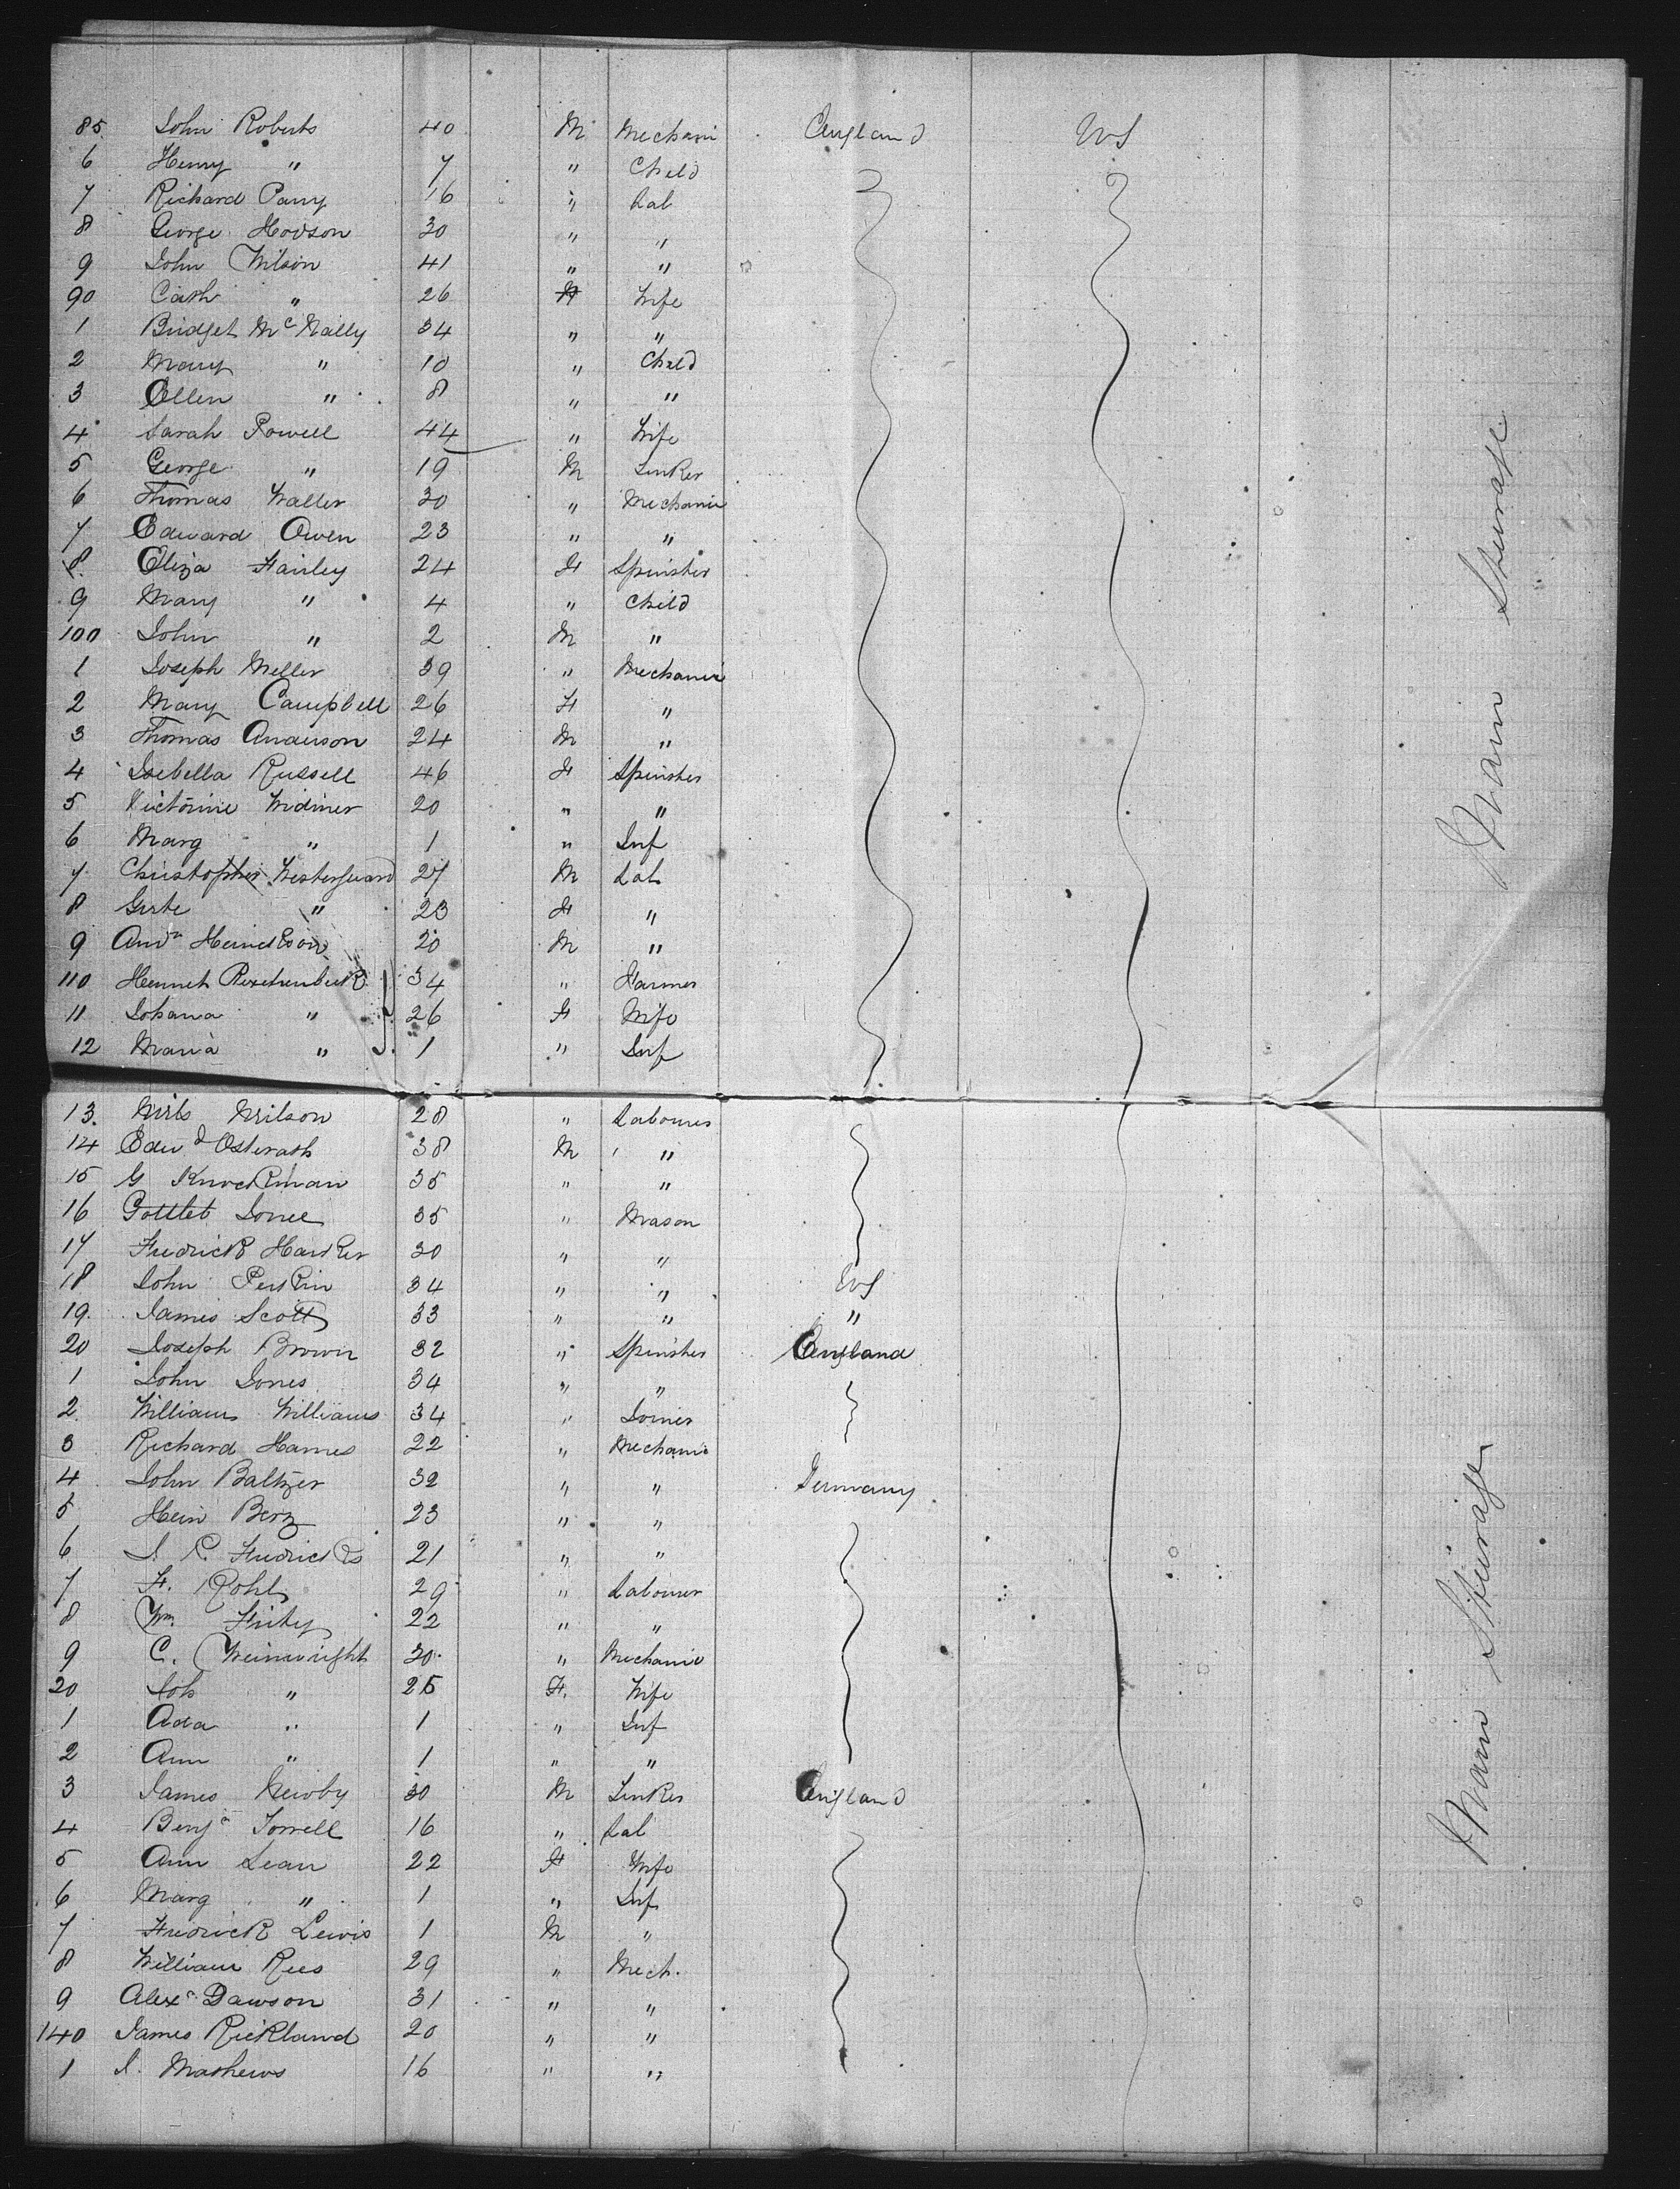 85. John Roberts 40 M Mechani England US
6 Henry " 7 " Child
7 Richard Parry 16 " Lab
8 George Hodson 30 " "
9 John Wilson 41 " "
90 Cath " 26 Wife
1 Bridget McNally 34 " "
2 Mary " 10 " Child
3 Ellen " 8 " "
4 Sarah Powell 44 " Wife
5 George " 19 M Tinker
6 Thomas Waller 30 " Mechanic
7 Edward Owen 23 " "
8 Eliza Fairley 24 F Spinster
9 Mary " 4 " Child
100 John " 2 M "
1 Joseph Meller 39 " Mechanic
2 Mary Campbell 26 F "
3 Thomas Anderson 24 M "
4 Isebella Russell 46 F Spinster
5 Victorine Widmer 20 " "
6 Marg " 1 " Inf
7 Christopher Westerguard 27 M Lab
8 " 23 F "
9 20 M "
110 34 " Farmer
11 Johana " 26 F Wife
12 Maria " 1 " Inf
13. Nilson 28 " Labourer
14 Edwd Osterath 38 M "
15 G 35 " "
16 Gottleb 35 " Mason
17 Fredrick Harker 30 " "
18 John Perkin 34 " " US
19. James Scott 33 " " "
20 Joseph Brown 32 " Spinster England
1 John Jones 34 " "
2 William Williams 34 " Joiner
3 Richard Hames 22 " Mechanic
4 John Baltzer 32 " " Germany
5 Hein Berz 23 " "
6 Fredricks 21 " "
7 F. Rohl 29 " Labourer
8 Wm 22 " "
9 C. Weinwright 30 " Mechanic
20 " 25 F. Wife
1 Ada " 1 " Inf
2 Ann " 1 " "
3 James Newby 30 M Tinker England
4 Benja 16 " Lab
5 Ann Lean 22 F Wife
6 Marg " 1 " Inf
7 Fredrick Lewis 1 M "
8 William Rees 29 " Mech.
9 Alexr Dawson 31 " "
140 James Rickland 20 " "
1 J. Mathews 16 " "
Main Steerage
Main Steerage